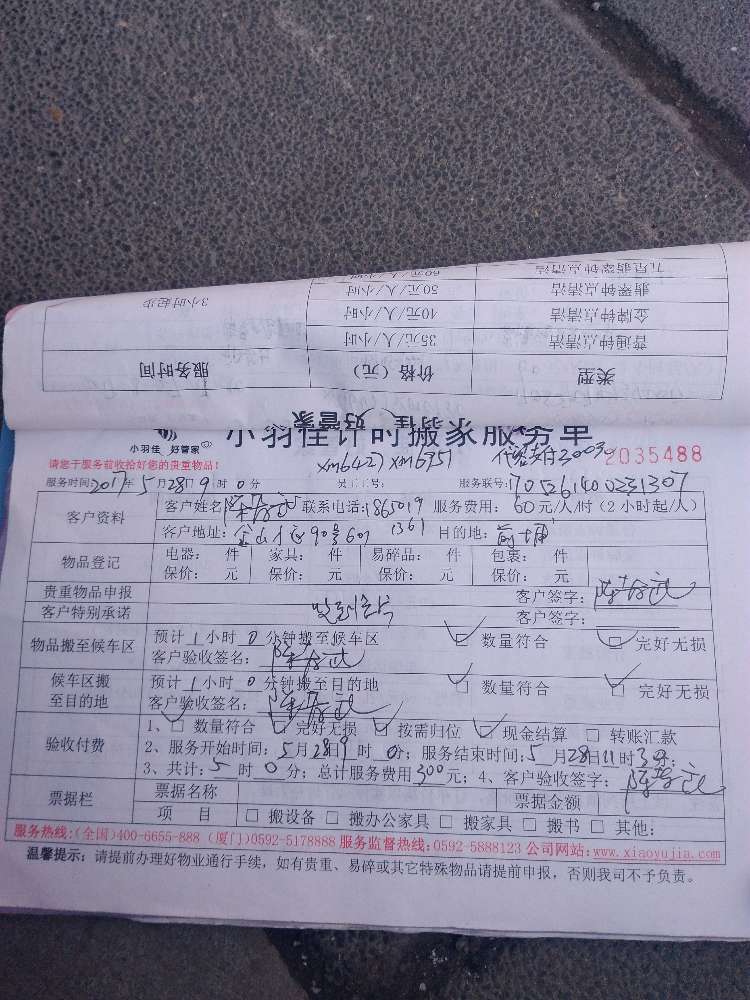 五星翡翠钟点清洁 60元/人/小时
翡翠钟点清洁 50元/人/小时 3小时起步
金牌钟点清洁 40元/人/小时
普通钟点清洁 35元/人/小时
类型 价格(元) 服务时间
羽佳 好管家
小羽佳计时搬家服务单
小羽佳 好管家
请您于服务前收拾好您的贵重物品!
xm6427 xm6951
2035488
服务时间:2017年5月28日9时0分 服务联号:
客户资料 客户姓名: 联系电话:1865019 服务费用:60元/人/时(2小时起/人)
1361
客户地址: 目的地:前埔
物品登记 电器: 件 家具: 件 易碎品: 件 包裹: 件
保价: 元 保价: 元 保价: 元 保价: 元
贵重物品申报 客户签字:
客户特别承诺 客户签字:
物品搬至候车区 预计1小时0分钟搬至候车区 数量符合 完好无损
客户验收签名:
候车区搬至目的地 预计1小时0分钟搬至目的地 数量符合 完好无损
客户验收签名:
验收付费 1、 数量符合 完好无损 按需归位 现金结算 转账汇款
2、服务开始时间:5月28日9时0分;服务结束时间:5月28日11时3分;
3、共计:5时0分;总计服务费用300元;4、客户验收签字:
票据栏 票据名称 票据金额
项 目 搬设备 搬办公家具 搬家具 搬书 其他:
服务热线:(全国)400-6655-888 (厦门)0592-5178888 服务监督热线:0592-5888123 公司网站:www.xiaoyujia.com
温馨提示:请提前办理好物业通行手续,如有贵重、易碎或其它特殊物品请提前申报,否则我司不予负责。